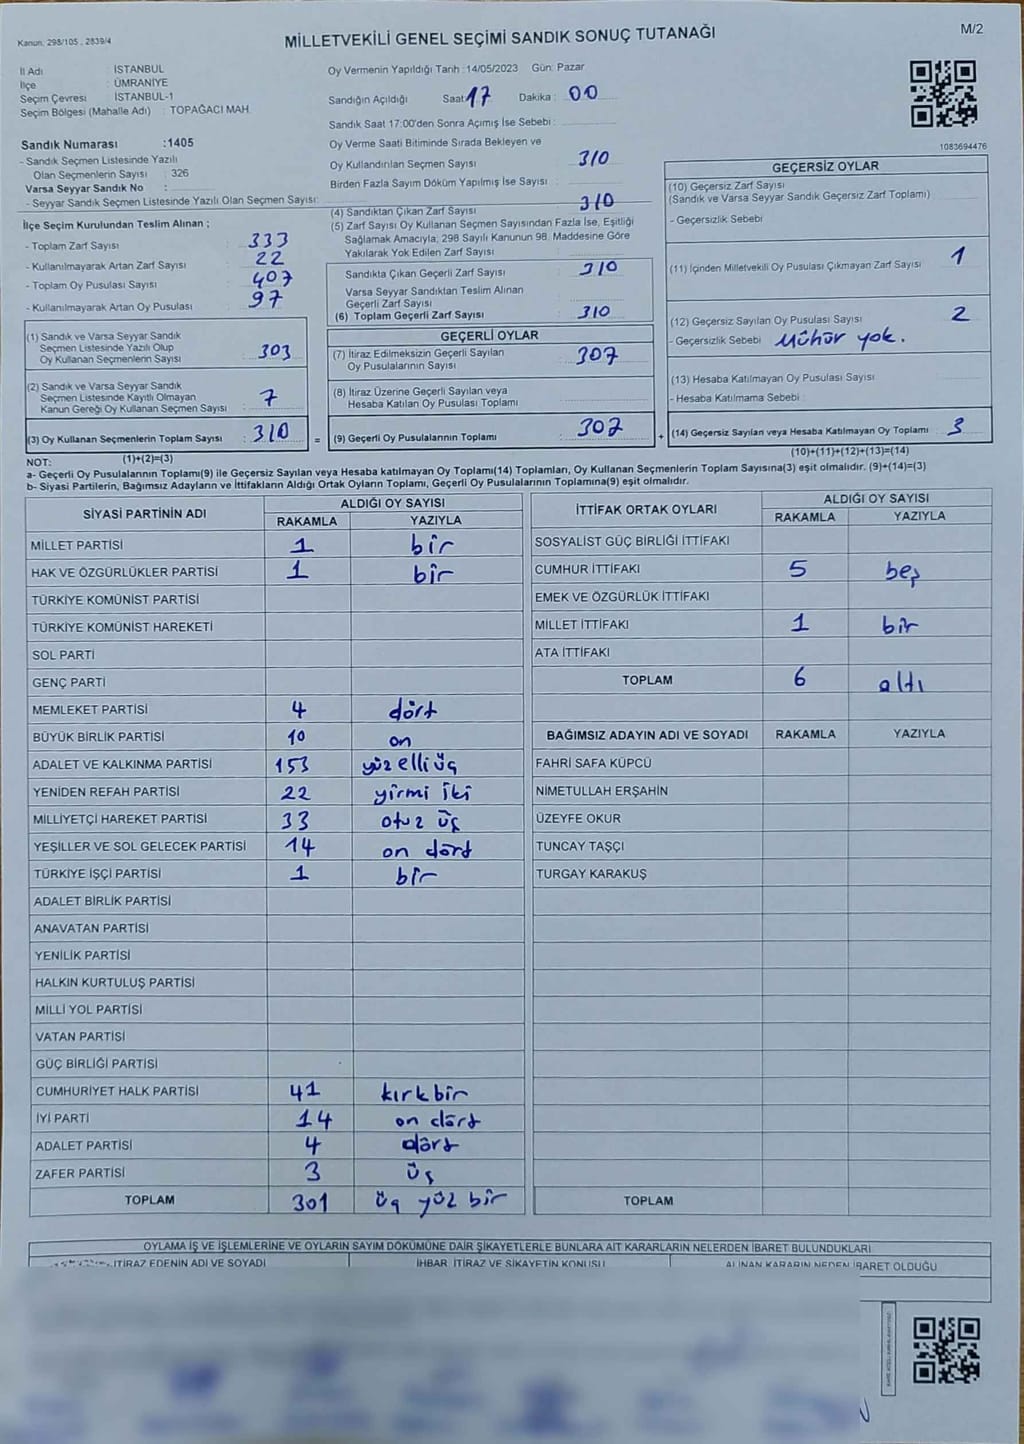 Kanun: 298/105 , 2839/4
MİLLETVEKİLİ GENEL SEÇİMİ SANDIK SONUÇ TUTANAĞI
M/2
İl Adı : İSTANBUL
İlçe : ÜMRANİYE
Seçim Çevresi : İSTANBUL-1
Seçim Bölgesi (Mahalle Adı) : TOPAĞACI MAH.
Sandık Numarası :1405
- Sandık Seçmen Listesinde Yazılı
Olan Seçmenlerin Sayısı : 326
Varsa Seyyar Sandık No :
- Seyyar Sandık Seçmen Listesinde Yazılı Olan Seçmen Sayısı:
İlçe Seçim Kurulundan Teslim Alınan ;
- Toplam Zarf Sayısı : 333
- Kullanılmayarak Artan Zarf Sayısı : 22
- Toplam Oy Pusulası Sayısı : 407
- Kullanılmayarak Artan Oy Pusulası : 97
(1) Sandık ve Varsa Seyyar Sandık
Seçmen Listesinde Yazılı Olup
Oy Kullanan Seçmenlerin Sayısı : 303
(2) Sandık ve Varsa Seyyar Sandık
Seçmen Listesinde Kayıtlı Olmayan
Kanun Gereği Oy Kullanan Seçmen Sayısı : 7
(3) Oy Kullanan Seçmenlerin Toplam Sayısı : 310
(1)+(2)=(3)
Oy Vermenin Yapıldığı Tarih :14/05/2023 Gün: Pazar
Sandığın Açıldığı Saat: 17 Dakika : 00
Sandık Saat 17:00'den Sonra Açımış İse Sebebi :
Oy Verme Saati Bitiminde Sırada Bekleyen ve
Oy Kullandırılan Seçmen Sayısı : 310
Birden Fazla Sayım Döküm Yapılmış İse Sayısı :
(4) Sandıktan Çıkan Zarf Sayısı : 310
(5) Zarf Sayısı Oy Kullanan Seçmen Sayısından Fazla İse, Eşitliği
Sağlamak Amacıyla; 298 Sayılı Kanunun 98. Maddesine Göre
Yakılarak Yok Edilen Zarf Sayısı :
Sandıkta Çıkan Geçerli Zarf Sayısı : 310
Varsa Seyyar Sandıktan Teslim Alınan
Geçerli Zarf Sayısı :
(6) Toplam Geçerli Zarf Sayısı : 310
GEÇERLİ OYLAR
(7) İtiraz Edilmeksizin Geçerli Sayılan
Oy Pusulalarının Sayısı : 307
(8) İtiraz Üzerine Geçerli Sayılan veya
Hesaba Katılan Oy Pusulası Toplamı :
= (9) Geçerli Oy Pusulalarının Toplamı : 307
1083694476
GEÇERSİZ OYLAR
(10) Geçersiz Zarf Sayısı
(Sandık ve Varsa Seyyar Sandık Geçersiz Zarf Toplamı) :
- Geçersizlik Sebebi :
(11) İçinden Milletvekili Oy Pusulası Çıkmayan Zarf Sayısı : 1
(12) Geçersiz Sayılan Oy Pusulası Sayısı : 2
- Geçersizlik Sebebi : Mühür yok.
(13) Hesaba Katılmayan Oy Pusulası Sayısı :
- Hesaba Katılmama Sebebi :
+ (14) Geçersiz Sayılan veya Hesaba Katılmayan Oy Toplamı : 3
(10)+(11)+(12)+(13)=(14)
NOT:
a- Geçerli Oy Pusulalarının Toplamı(9) ile Geçersiz Sayılan veya Hesaba katılmayan Oy Toplamı(14) Toplamları, Oy Kullanan Seçmenlerin Toplam Sayısına(3) eşit olmalıdır. (9)+(14)=(3)
b- Siyasi Partilerin, Bağımsız Adayların ve İttifakların Aldığı Ortak Oyların Toplamı, Geçerli Oy Pusulalarının Toplamına(9) eşit olmalıdır.
SİYASİ PARTİNİN ADI ALDIĞI OY SAYISI
RAKAMLA YAZIYLA
MİLLET PARTİSİ 1 bir
HAK VE ÖZGÜRLÜKLER PARTİSİ 1 bir
TÜRKİYE KOMÜNİST PARTİSİ
TÜRKİYE KOMÜNİST HAREKETİ
SOL PARTİ
GENÇ PARTİ
MEMLEKET PARTİSİ 4 dört
BÜYÜK BİRLİK PARTİSİ 10 on
ADALET VE KALKINMA PARTİSİ 153 yüz elli üç
YENİDEN REFAH PARTİSİ 22 yirmi iki
MİLLİYETÇİ HAREKET PARTİSİ 33 otuz üç
YEŞİLLER VE SOL GELECEK PARTİSİ 14 on dört
TÜRKİYE İŞÇİ PARTİSİ 1 bir
ADALET BİRLİK PARTİSİ
ANAVATAN PARTİSİ
YENİLİK PARTİSİ
HALKIN KURTULUŞ PARTİSİ
MİLLİ YOL PARTİSİ
VATAN PARTİSİ
GÜÇ BİRLİĞİ PARTİSİ
CUMHURİYET HALK PARTİSİ 41 kırk bir
İYİ PARTİ 14 on dört
ADALET PARTİSİ 4 dört
ZAFER PARTİSİ 3 üç
TOPLAM 301 üç yüz bir
İTTİFAK ORTAK OYLARI ALDIĞI OY SAYISI
RAKAMLA YAZIYLA
SOSYALİST GÜÇ BİRLİĞİ İTTİFAKI
CUMHUR İTTİFAKI 5 beş
EMEK VE ÖZGÜRLÜK İTTİFAKI
MİLLET İTTİFAKI 1 bir
ATA İTTİFAKI
TOPLAM 6 altı
BAĞIMSIZ ADAYIN ADI VE SOYADI RAKAMLA YAZIYLA
FAHRİ SAFA KÜPCÜ
NİMETULLAH ERŞAHİN
ÜZEYFE OKUR
TUNCAY TAŞÇI
TURGAY KARAKUŞ
TOPLAM
OYLAMA İŞ VE İŞLEMLERİNE VE OYLARIN SAYIM DÖKÜMÜNE DAİR ŞİKAYETLERLE BUNLARA AİT KARARLARIN NELERDEN İBARET BULUNDUKLARI
İTİRAZ EDENİN ADI VE SOYADI
İHBAR, İTİRAZ VE ŞİKAYETİN KONUSU
ALINAN KARARIN NEDEN İBARET OLDUĞU